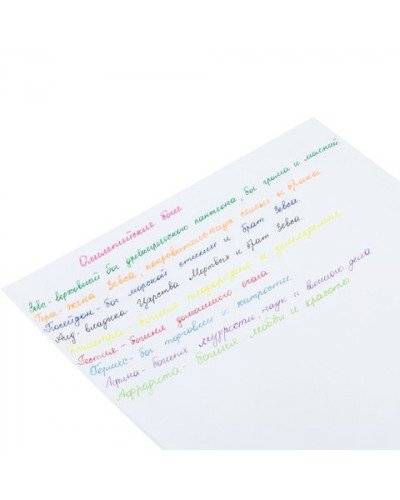 Олимпийские боги
Зевс - верховный бог древнегреческого пантеона, бог грома и молний.
Гера - жена Зевса, покровительница семьи и брака
Посейдон - бог морской стихии и брат Зевса.
Аид - владыка Царства Мертвых и брат Зевса.
Деметра - богиня плодородия и земледелия
Гестия - богиня домашнего очага.
Гермес - бог торговли и хитрости.
Афина - богиня мудрости, наук и военного дела.
Афродита - богиня любви и красоты